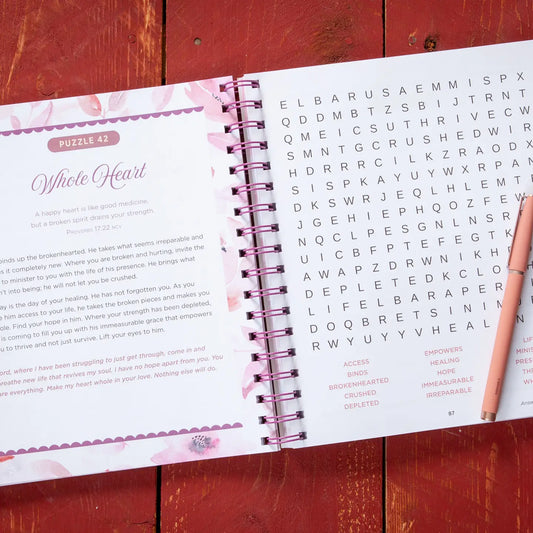 PUZZLE 42
Whole Heart
A happy heart is like good medicine,
but a broken spirit drains your strength.
PROVERBS 17:22 NCV
binds up the brokenhearted. He takes what seems irreparable and
s it completely new. Where you are broken and hurting, invite the
to minister to you with the life of his presence. He brings what
n't into being; he will not let you be crushed.
ay is the day of your healing. He has not forgotten you. As you
ole. Find your hope in him. Where your strength has been depleted,
is coming to fill you up with his immeasurable grace that empowers
u to thrive and not just survive. Lift your eyes to him.
ord, where I have been struggling to just get through, come in and
reathe new life that revives my soul. I have no hope apart from you. You
are everything. Make my heart whole in your love. Nothing else will do.
E L B A R U S A E M M I S P X
Q D D M B T Z S B I J T R N T
Q M E I C S U T H R I V E C W
S M N T G C R U S H E D W I R
H D R R R C I L K Z R A O D X
S I S P K A Y U Y W X R P A N
D K S W R J E Q L H L E M
J G E H I E P H Q O Z F E
N Q C L P E S G N L N S R
U I C B F P T E F E G T
A W A P Z D R W N I K H
D E P L E T E D K C L O
L I F E L B A R A P E R
D O Q B R E T S I N I M
R W Y U Y Y V H E A L
ACCESS
BINDS
BROKENHEARTED
CRUSHED
DEPLETED
EMPOWERS
HEALING
HOPE
IMMEASURABLE
IRREPARABLE
97